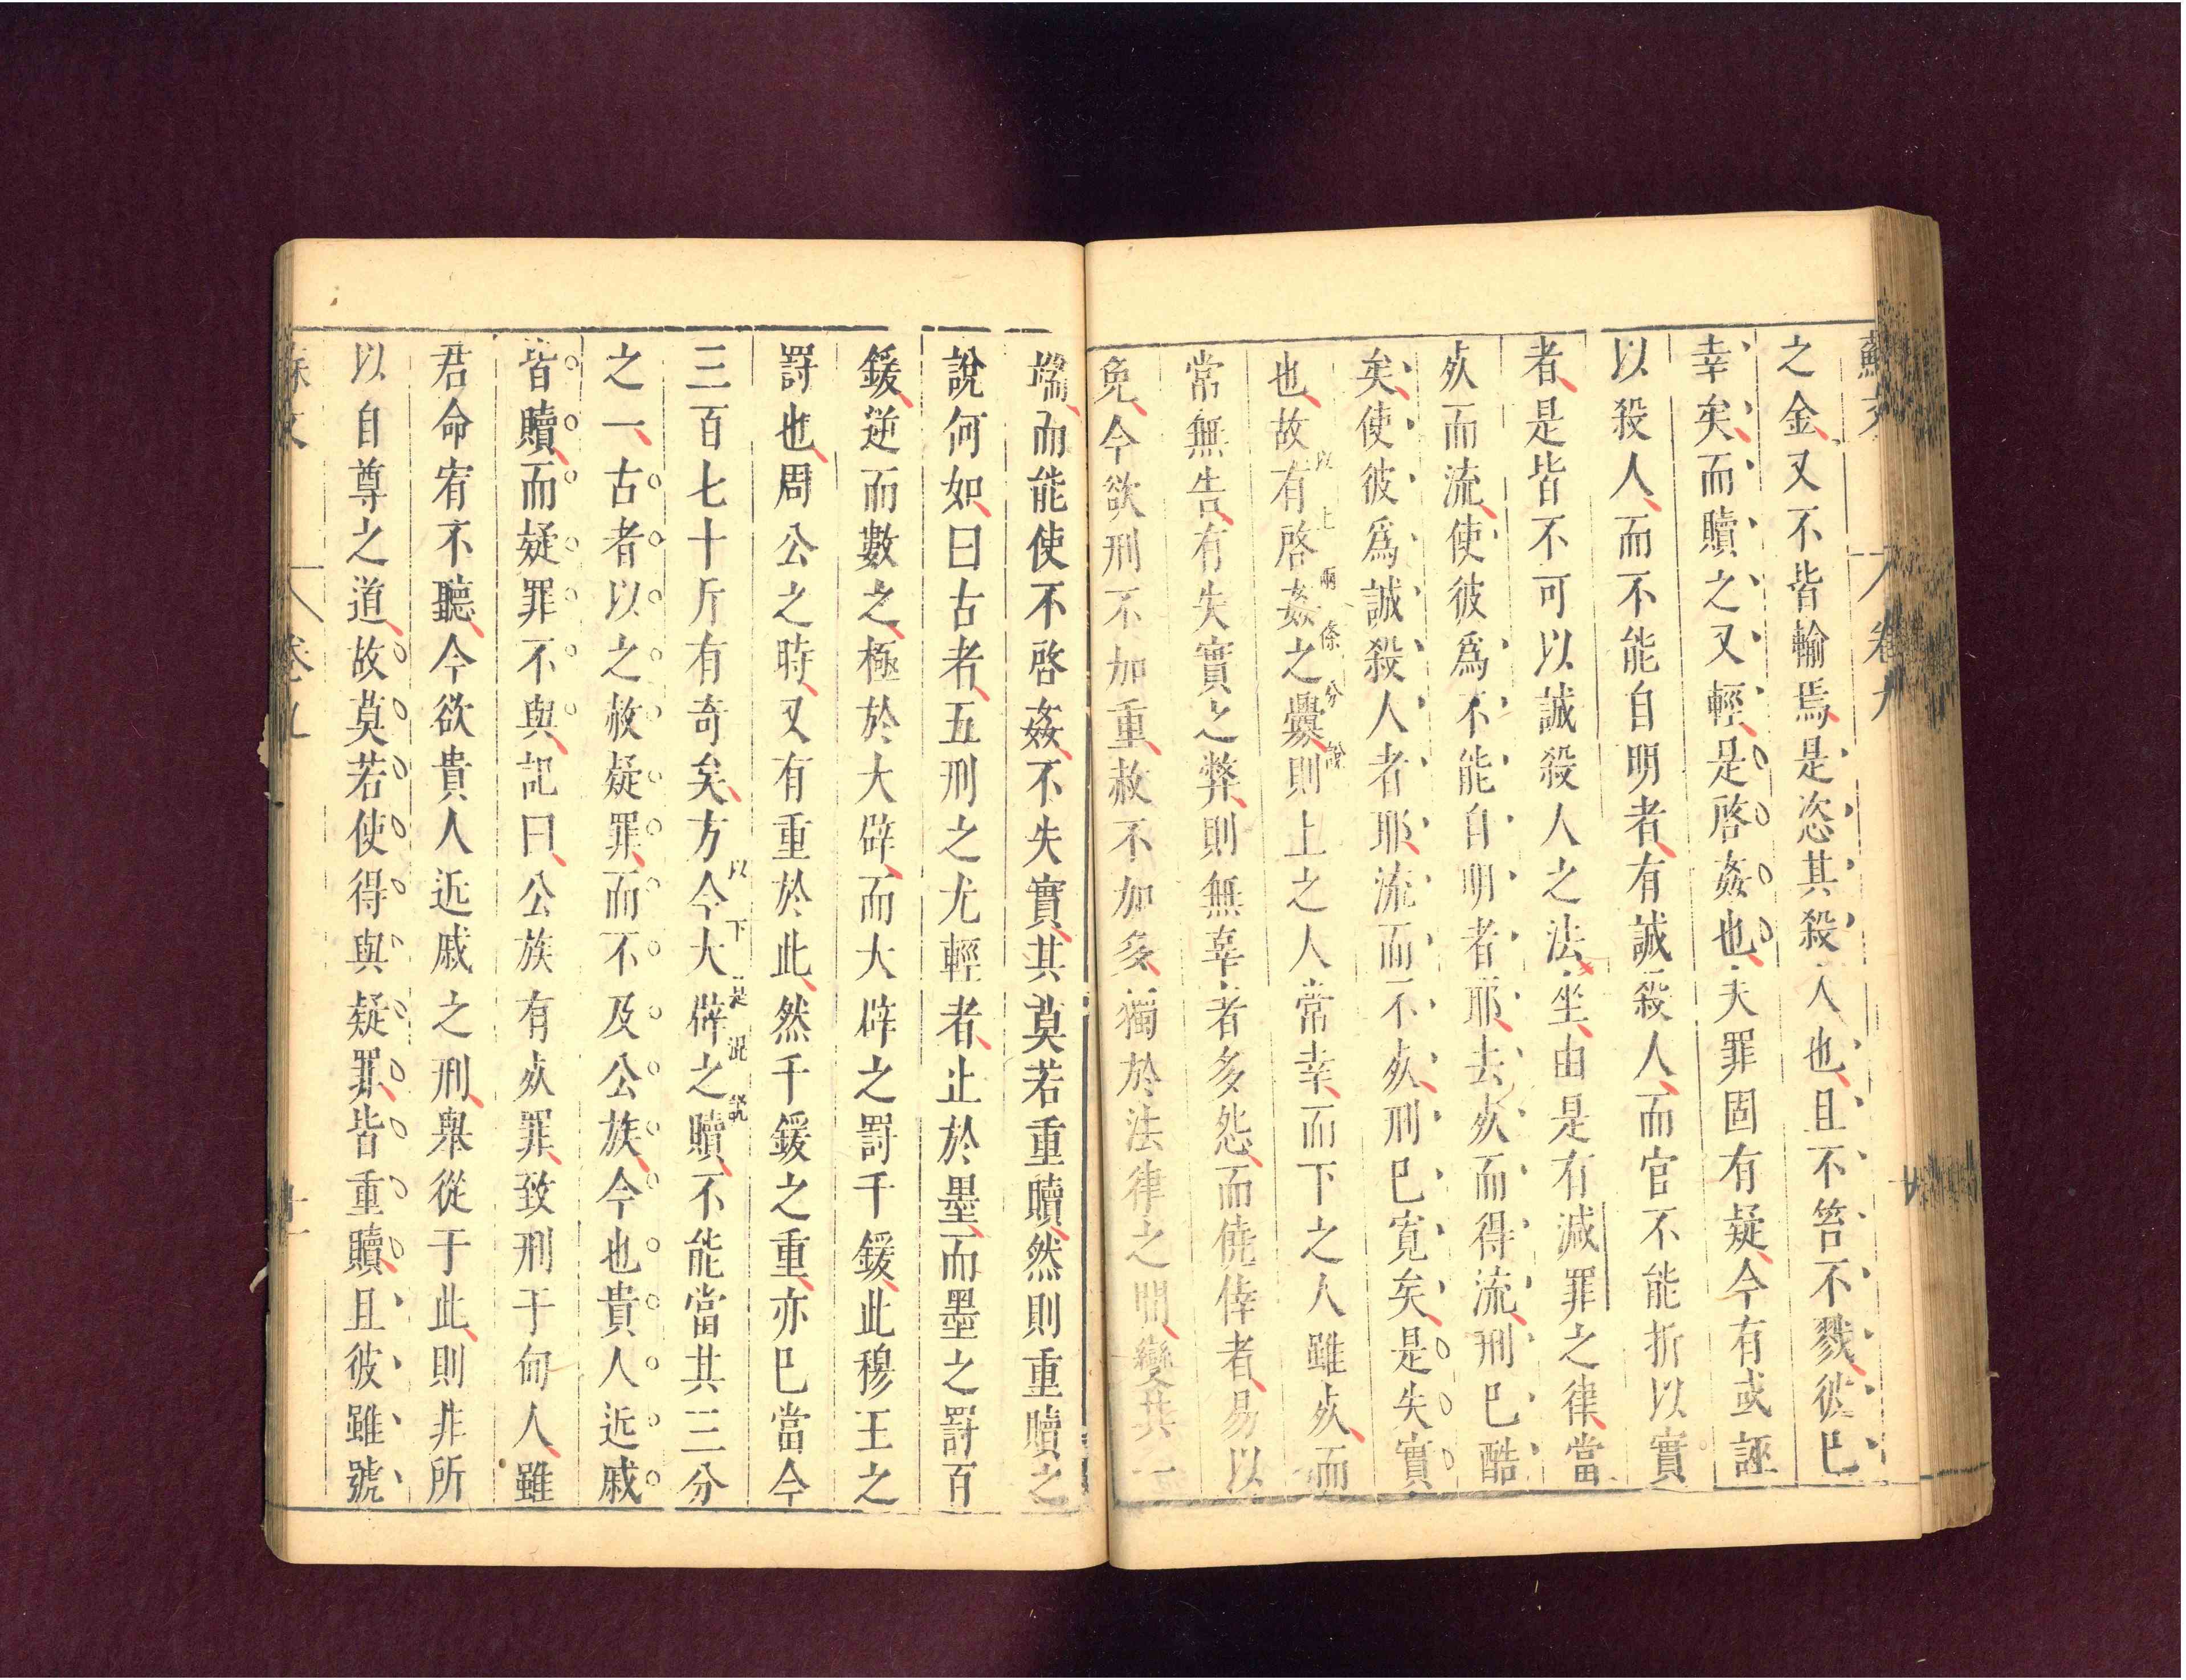 蘇文 卷九
之金又不皆輸焉是恣其殺人也且不笞不戮彼巳
幸矣而贖之又輕是啓姦也夫罪固有疑今有或誣
以殺人而不能自明者有誠殺人而官不能折以實
者是皆不可以誠殺人之法坐由是有減罪之律當
灰而流使彼爲不能自明者耶去灰而得流刑巳酷
矣使彼爲誠殺人者耶流而不灰刑巳寛矣是失實
以上兩條分說
也故有啓姦之釁則上之人常幸而下之人雖灰而
常無告有失實之弊則無辜者多怨而僥倖者易以
免今欲刑不加重赦不加多獨於法律之間變其一
端而能使不啓姦不失實其莫若重贖然則重贖之
說何如曰古者五刑之尤輕者止於墨而墨之罸百
鍰逆而數之極於大辟而大辟之罸千鍰此穆王之
罸也周公之時又有重於此然千鍰之重亦巳當今
三百七十斤有奇矣方今大辟之贖不能當其三分
以下是混說
之一古者以之赦疑罪而不及公族今也貴人近戚
皆贖而疑罪不與記曰公族有灰罪致刑于甸人雖
君命宥不聽今欲貴人近戚之刑舉從于此則非所
以自尊之道故莫若使得與疑罪皆重贖且彼雖號
蘇文 卷九